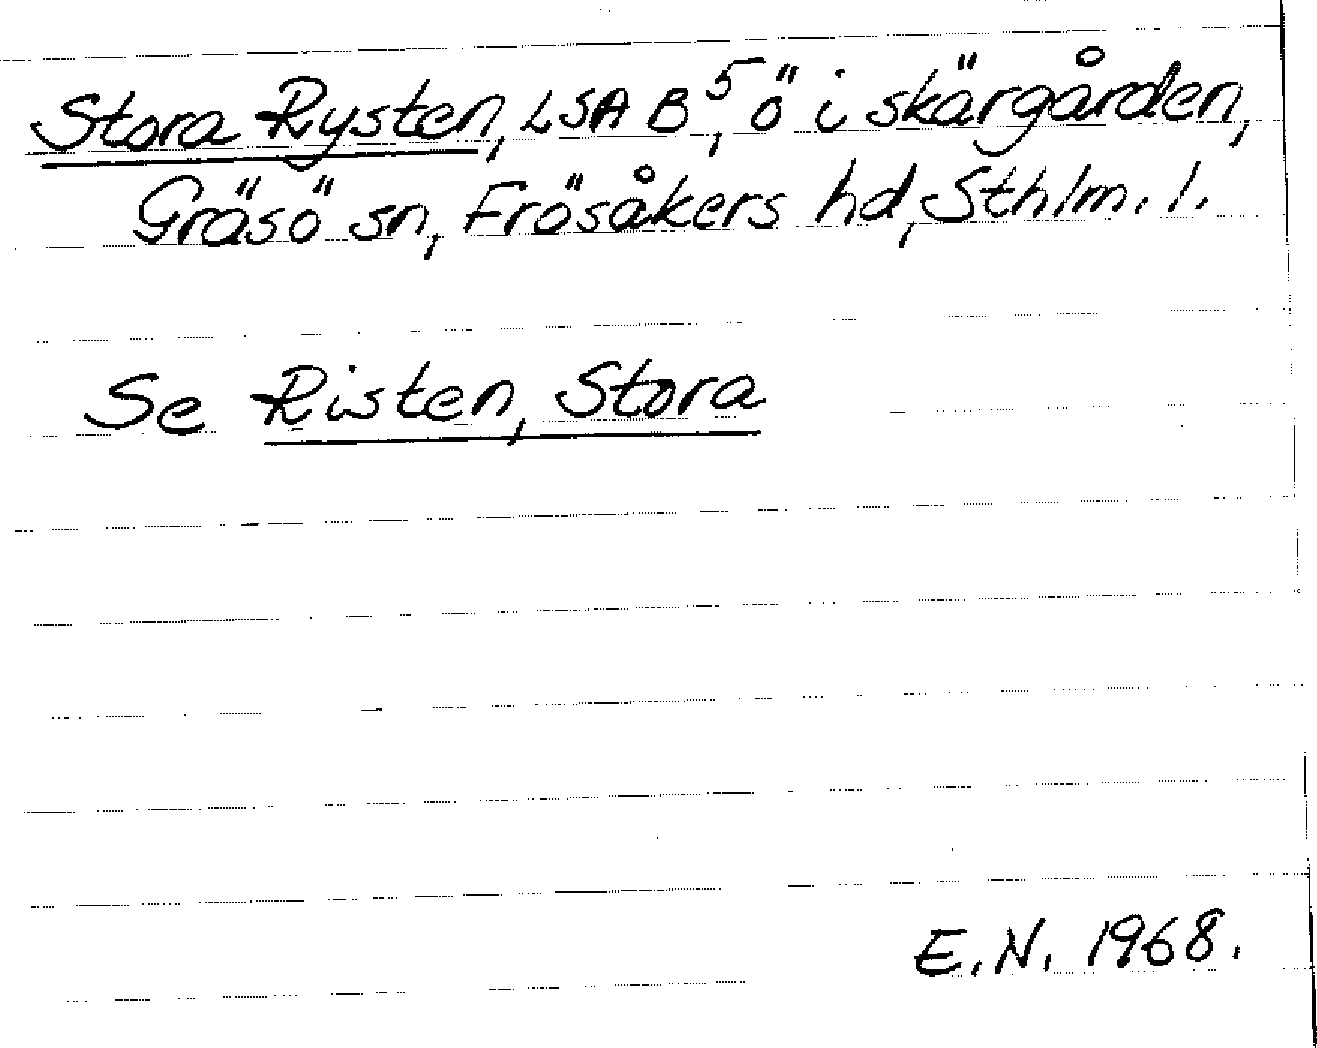 Stora Rysten, LSA B⁵, ö i skärgården,
Gräsö sn, Frösåkers hd, Sthlm. l.
Se Risten, Stora
E.N. 1968.